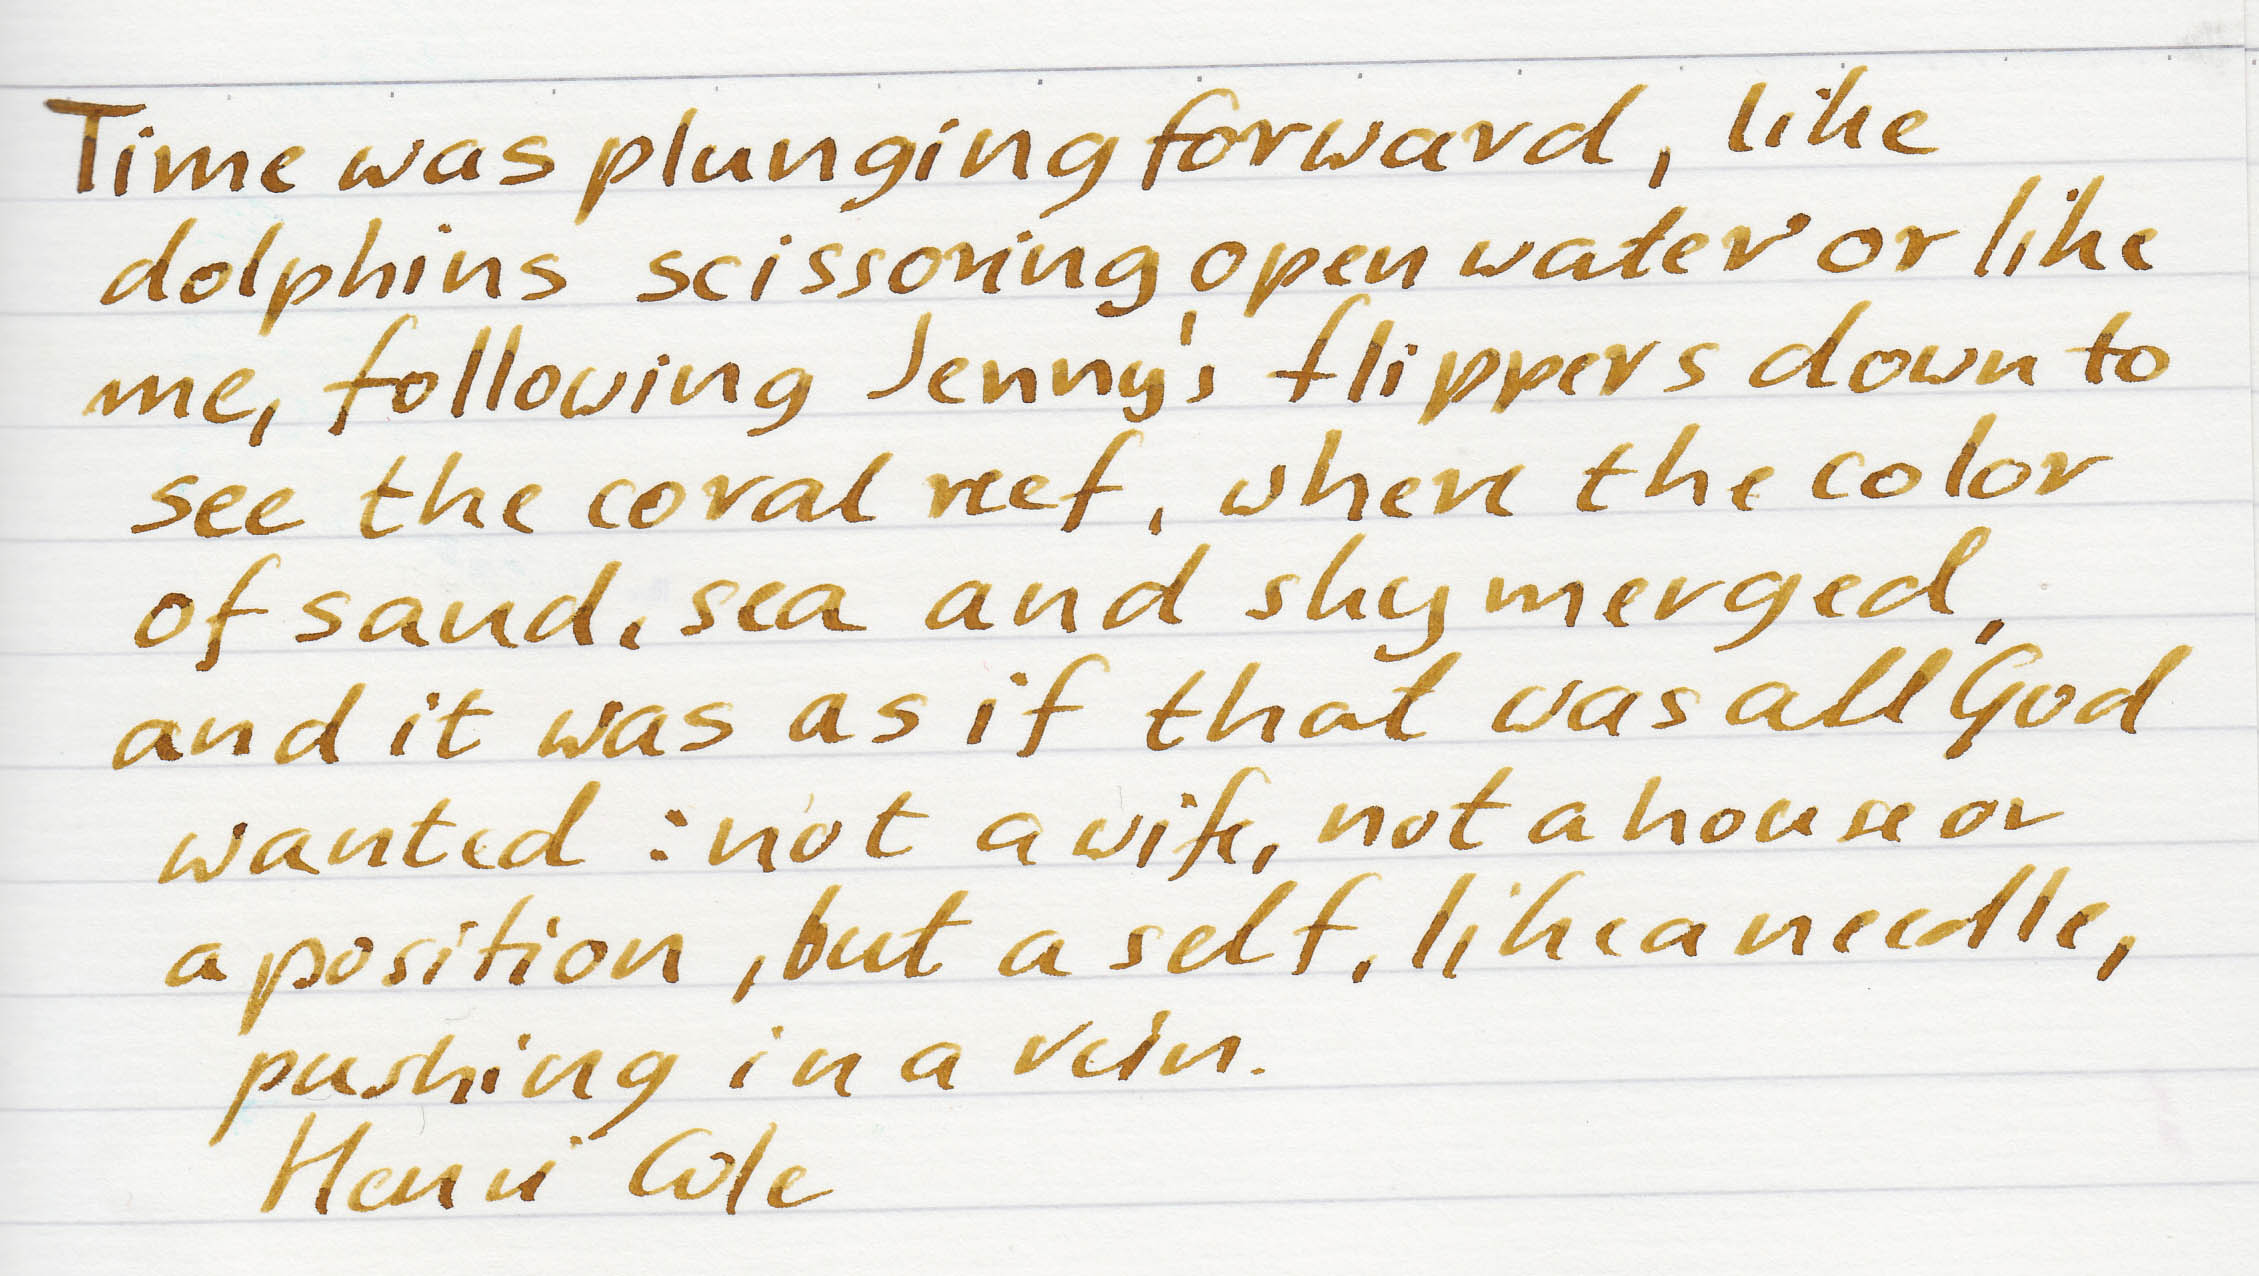 Time was plunging forward, like
dolphins scissoring open water or like
me, following Jenny's flippers down to
see the coral reef, where the color
of sand, sea and sky merged,
and it was as if that was all God
wanted: not a wife, not a house or
a position, but a self, like a needle,
pushing in a vein.
Henri Cole